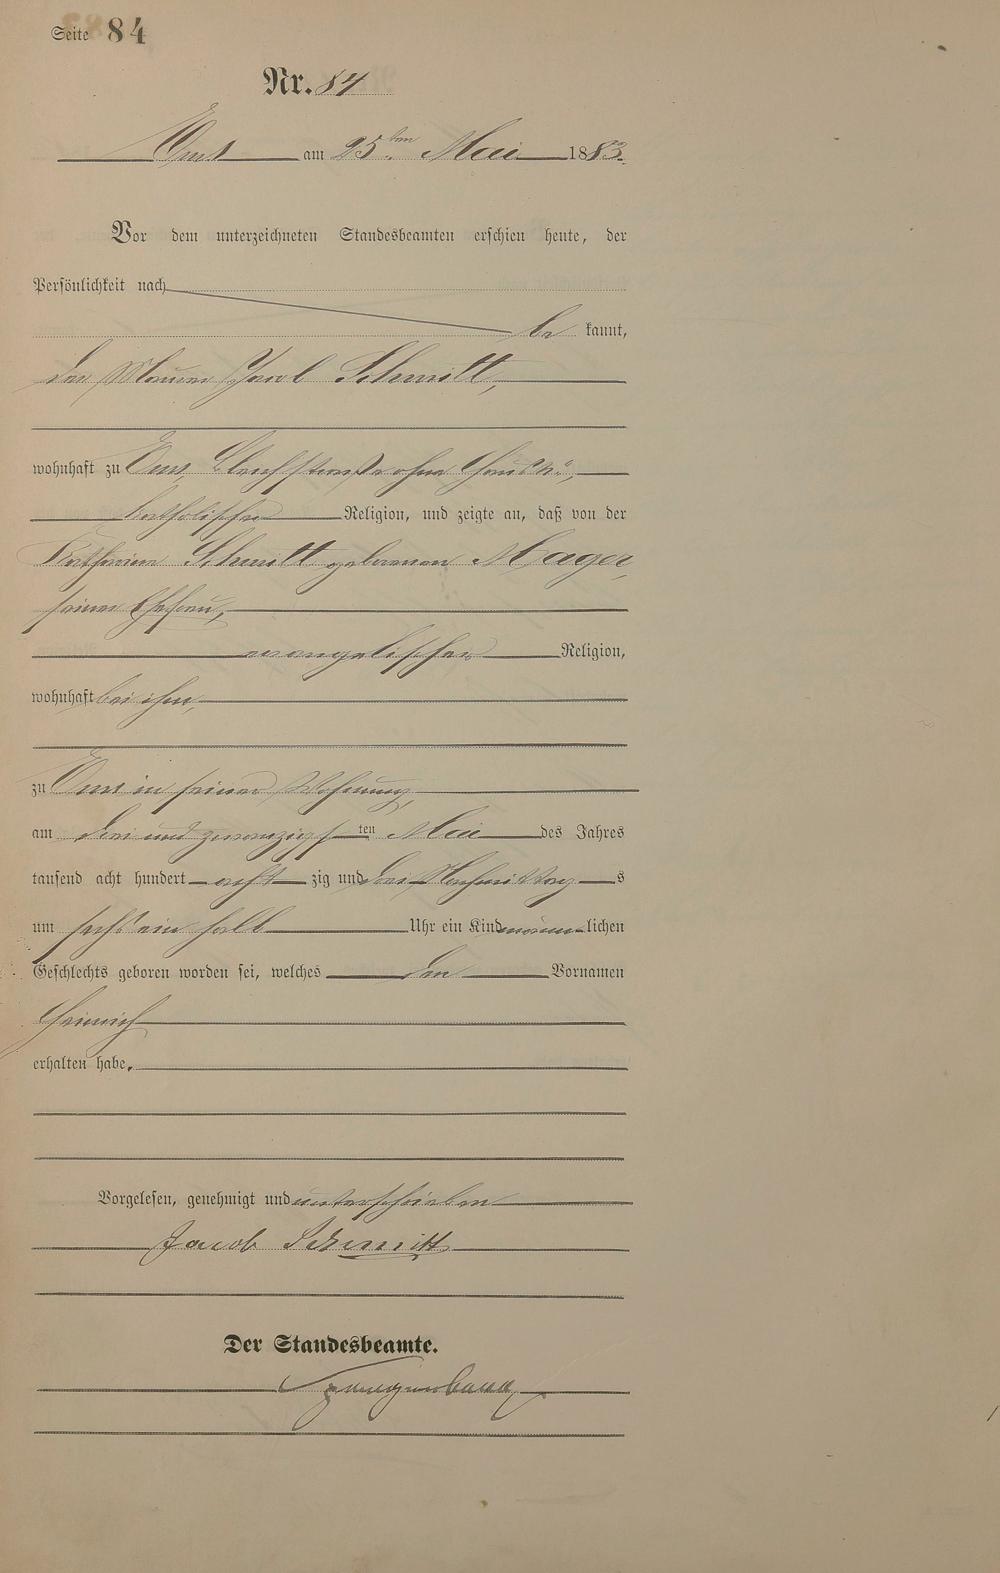 Seite 84
Nr. 84
Ems am 25ten Mai 1883.
Vor dem unterzeichneten Standesbeamten erschien heute, der
Persönlichkeit nach
be kannt,
der Maurer Jacob Schmitt,
wohnhaft zu Ems, Bleichstraße ohne Haus No,
katholischer Religion, und zeigte an, daß von der
Katharina Schmitt geborenen Mager,
seiner Ehefrau,
evangelischer Religion,
wohnhaft bei ihm,
zu Ems in seiner Wohnung,
am drei und zwanzigsten Mai des Jahres
tausend acht hundert acht zig und drei Nachmittags
um sechs ein halb Uhr ein Kind männlichen
Geschlechts geboren worden sei, welches den Vornamen
Heinrich
erhalten habe.
Vorgelesen, genehmigt und unterschrieben
Jacob Schmitt
Der Standesbeamte.